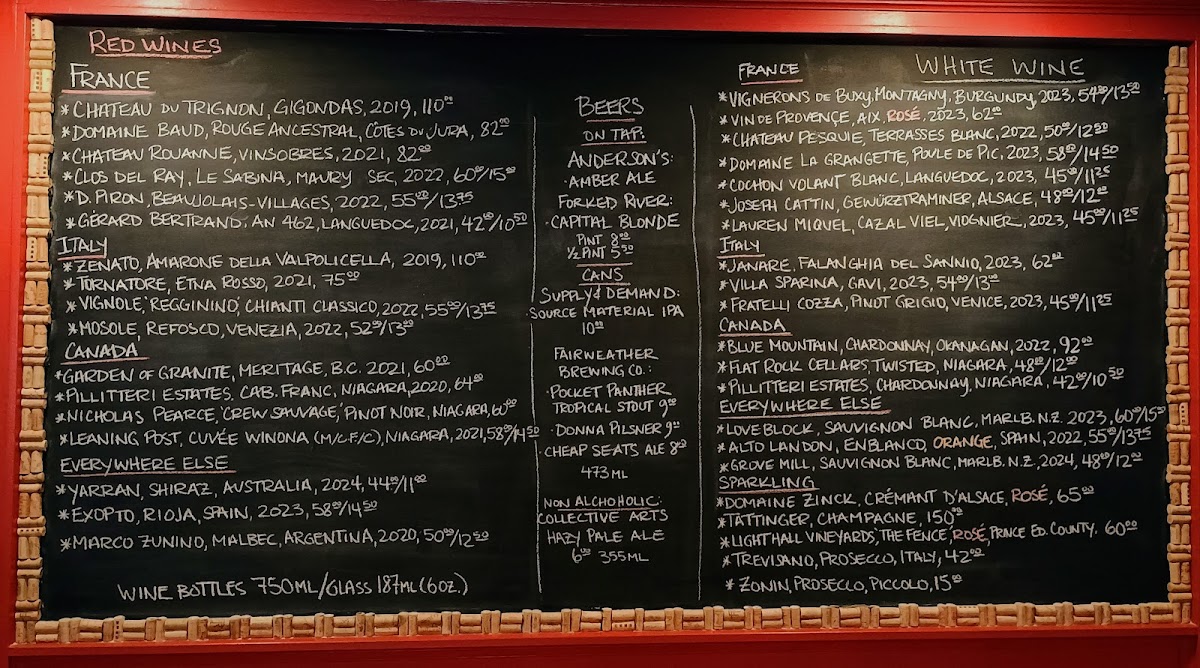 RED WINES
FRANCE
*CHATEAU DU TRIGNON, GIGONDAS, 2019, 110.00
*DOMAINE BAUD, ROUGE ANCESTRAL, CÔTES DU JURA, 82.00
*CHATEAU ROUANNE, VINSOBRES, 2021, 82.00
*CLOS DEL RAY, LE SABINA, MAURY SEC, 2022, 60.00/15.00
*D. PIRON, BEAUJOLAIS-VILLAGES, 2022, 55.00/13.75
*GÉRARD BERTRAND, AN 462, LANGUEDOC, 2021, 42.00/10.50
ITALY
*ZENATO, AMARONE DELLA VALPOLICELLA, 2019, 110.00
*TORNATORE, ETNA ROSSO, 2021, 75.00
*VIGNOLE, 'REGGININO', CHIANTI CLASSICO, 2022, 55.00/13.75
*MOSOLE, REFOSCO, VENEZIA, 2022, 52.00/13.00
CANADA
*GARDEN OF GRANITE, MERITAGE, B.C. 2021, 60.00
*PILLITTERI ESTATES, CAB. FRANC, NIAGARA, 2020, 64.00
*NICHOLAS PEARCE, 'CREW SAUVAGE,' PINOT NOIR, NIAGARA, 60.00
*LEANING POST, CUVÉE WINONA (M/C.F/C), NIAGARA, 2021, 58.00/14.50
EVERYWHERE ELSE
*YARRAN, SHIRAZ, AUSTRALIA, 2024, 44.00/11.00
*EXOPTO, RIOJA, SPAIN, 2023, 58.00/14.50
*MARCO ZUNINO, MALBEC, ARGENTINA, 2020, 50.00/12.50
WINE BOTTLES 750ML/GLASS 187ML (6OZ.)
BEERS
ON TAP:
ANDERSON'S:
·AMBER ALE
FORKED RIVER:
·CAPITAL BLONDE
PINT 8.00
1/2 PINT 5.50
CANS
SUPPLY & DEMAND:
·SOURCE MATERIAL IPA
10.00
FAIRWEATHER
BREWING CO.:
·POCKET PANTHER
TROPICAL STOUT 9.00
·DONNA PILSNER 9.00
·CHEAP SEATS ALE 8.00
473ML
NON ALCHOHOLIC:
COLLECTIVE ARTS
HAZY PALE ALE
6.00 355ML
WHITE WINE
FRANCE
*VIGNERONS DE BUXY, MONTAGNY, BURGUNDY, 2023, 54.00/13.50
*VIN DE PROVENÇE, AIX, ROSÉ, 2023, 62.00
*CHATEAU PESQUIE, TERRASSES BLANC, 2022, 50.00/12.50
*DOMAINE LA GRANGETTE, POULE DE PIC, 2023, 58.00/14.50
*COCHON VOLANT BLANC, LANGUEDOC, 2023, 45.00/11.25
*JOSEPH CATTIN, GEWÜRZTRAMINER, ALSACE, 48.00/12.00
*LAUREN MIQUEL, CAZAL VIEL, VIOGNIER, 2023, 45.00/11.25
ITALY
*JANARE, FALANGHIA DEL SANNIO, 2023, 62.00
*VILLA SPARINA, GAVI, 2023, 54.00/13.00
*FRATELLI COZZA, PINOT GRIGIO, VENICE, 2023, 45.00/11.25
CANADA
*BLUE MOUNTAIN, CHARDONNAY, OKANAGAN, 2022, 92.00
*FLAT ROCK CELLARS, TWISTED, NIAGARA, 48.00/12.00
*PILLITTERI ESTATES, CHARDONNAY, NIAGARA, 42.00/10.50
EVERYWHERE ELSE
*LOVEBLOCK, SAUVIGNON BLANC, MARLB. N.Z. 2023, 60.00/15.00
*ALTO LANDON, ENBLANCO, ORANGE, SPAIN, 2022, 55.00/13.75
*GROVE MILL, SAUVIGNON BLANC, MARLB. N.Z., 2024, 48.00/12.00
SPARKLING
*DOMAINE ZINCK, CRÉMANT D'ALSACE, ROSÉ, 65.00
*TATTINGER, CHAMPAGNE, 150.00
*LIGHTHALL VINEYARDS, 'THE FENCE', ROSÉ, PRINCE ED. COUNTY. 60.00
*TREVISANO, PROSECCO, ITALY, 42.00
*ZONIN, PROSECCO, PICCOLO, 15.00